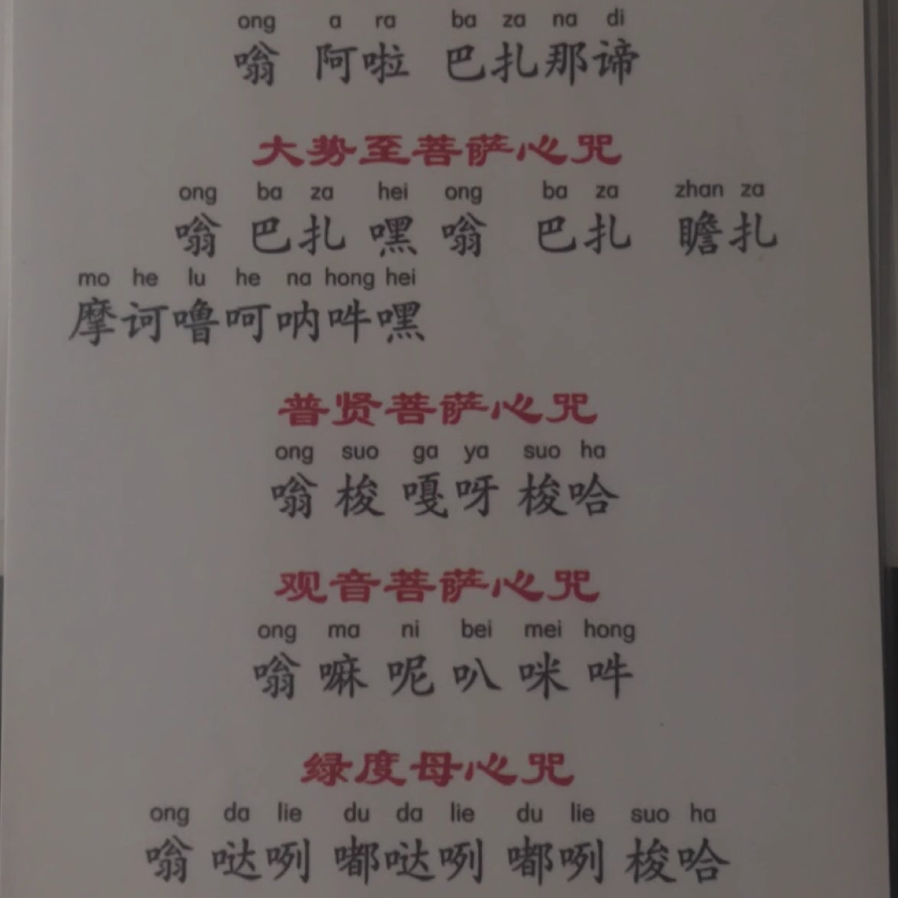 ong a ra ba za na di
嗡 阿啦 巴扎那谛
大势至菩萨心咒
ong ba za hei ong ba za zhan za
嗡 巴扎 嘿 嗡 巴扎 瞻扎
mo he lu he na hong hei
摩诃噜呵呐吽嘿
普贤菩萨心咒
ong suo ga ya suo ha
嗡 梭 嘎呀 梭哈
观音菩萨心咒
ong ma ni bei mei hong
嗡 嘛 呢 叭 咪 吽
绿度母心咒
ong da lie du da lie du lie suo ha
嗡 哒咧 嘟哒咧 嘟咧 梭哈